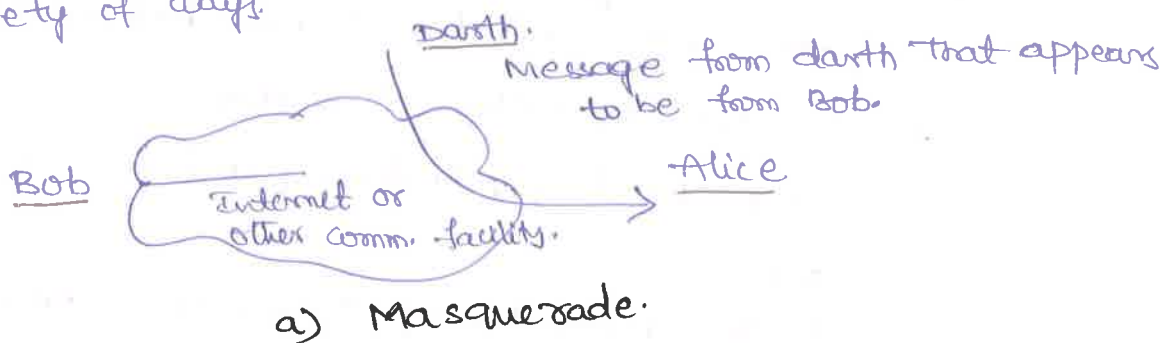 ety of ways.
Darth.
Message from darth that appears
to be from Bob.
Bob
Alice
Internet or
other comm. facility.
a) Masquerade.